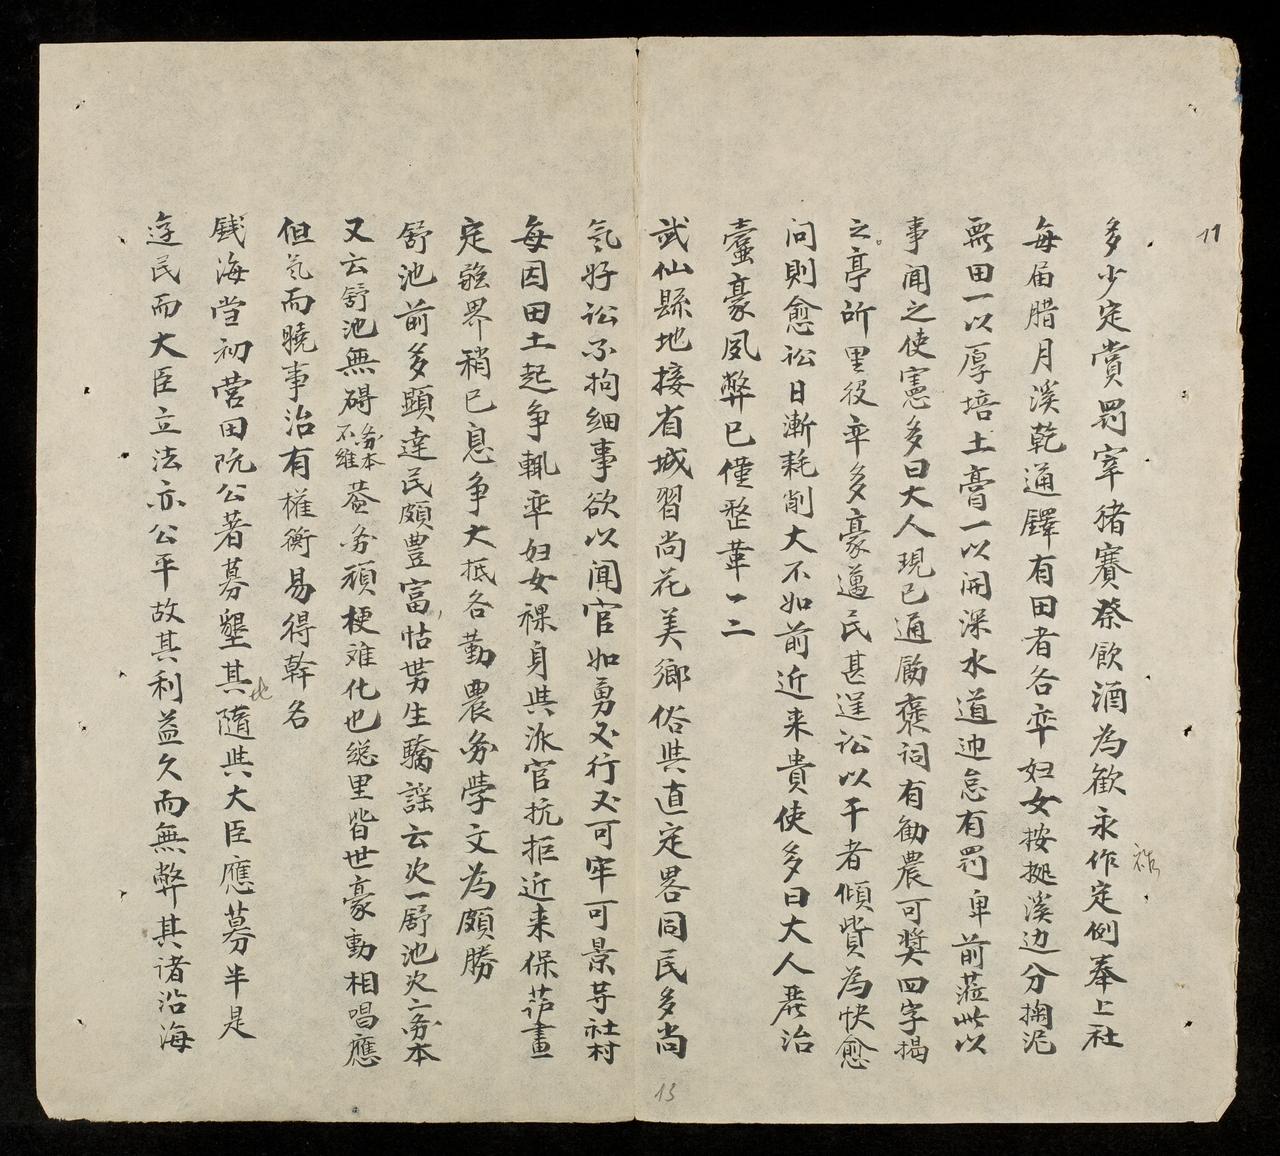 11
多少定賞罰宰猪賽祭飲酒為歡永作定例奉上社
每届腊月溪乾通鐸有田者各率妇女按拠溪边分掬泥
要田一以厚培土膏一以開深水道迚怠有罰卑前蒞此以
事闻之使憲多曰大人現已通勵褒詞有勧農可奨四字揭
之亭所里役率多豪邁民甚逞訟以干者傾貲為快愈
问則愈訟日漸耗削大不如前近来貴使多曰大人嚴治
蠧豪夙弊已僅整葦一二
武仙縣地接省城習尚花美郷俗與直定畧同民多尚
氣好訟不拘细事欲以闻官如勇必行必可牢可景等社村
每因田土起争輒率妇女裸身與派官抗拒近来保范畫
定强界稍已息争大抵各勤農务學文為頗勝
舒池前多顕達民頗豊富怙势生驕謡云次一舒池次二务本
又云舒池無碍务本不维盖务頑梗难化也縂里皆世豪動相唱應
但氣而曉事治有權衡易得幹名
銭海啻初营田阮公著募墾其隨與大臣應募半是
迯民而大臣立法亦公平故其利益久而無弊其诸沿海
13